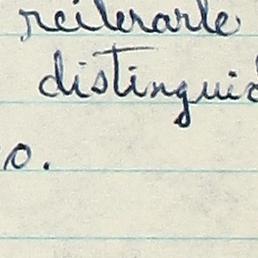 reiterarle
distinguid
o.